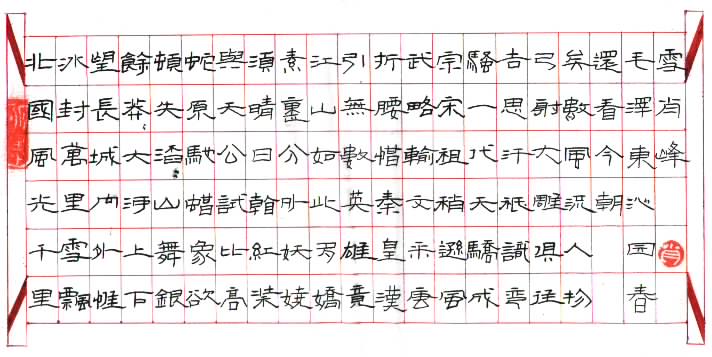 北國風光千里
冰封萬里雪飄
望長城內外惟
餘莽々大河上下
頓失滔々山舞銀
蛇原馳蠟象欲
與天公試比高
須晴日翰紅裝
素裹分外妖嬈
江山如此多嬌
引無數英雄竟
折腰惜秦皇漢
武略輸文采唐
宗宋祖稍遜風
騷一代天驕成
吉思汗祇識彎
弓射大雕俱往
矣數風流人物
還看今朝
毛澤東沁园春
雪肖峰